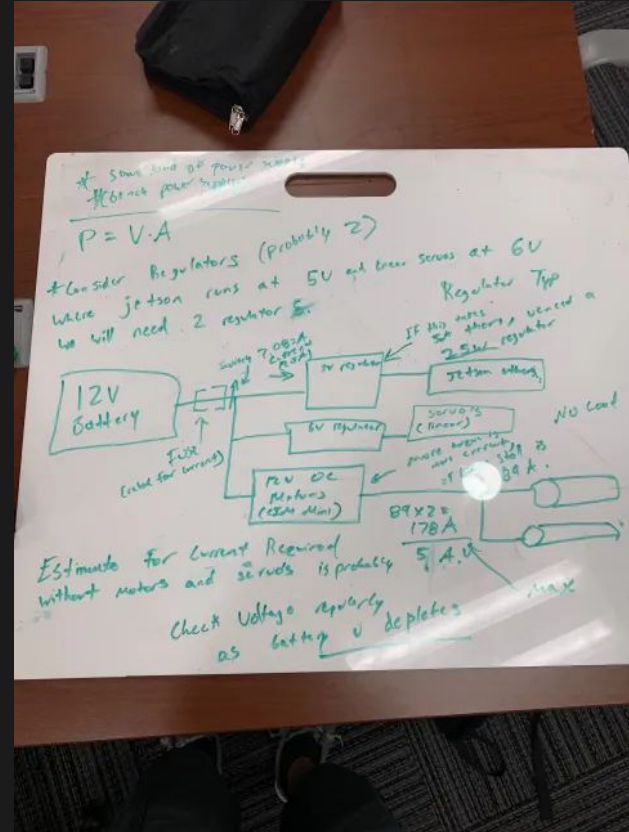 * some kind of power supply
* bench power supply
P = V·A
* Consider Regulators (probably 2)
where jetson runs at 5V and linear servos at 6V
we will need 2 regulators.
Regulator Typ
If this takes
5A others, we need a
25W regulator
7.083A
12V
Battery
5V regulator
Jetson others,
Fuse
(rated for current)
6V regulator
Servo's
(linear)
No Load
12V DC
Motors
(CIM Mini)
more torque is
more current,
stall is
89 A.
89x2=
178A
5 A.
Max
Estimate for Current Required
without motors and servos is probably
Check Voltage regularly
as battery V depletes